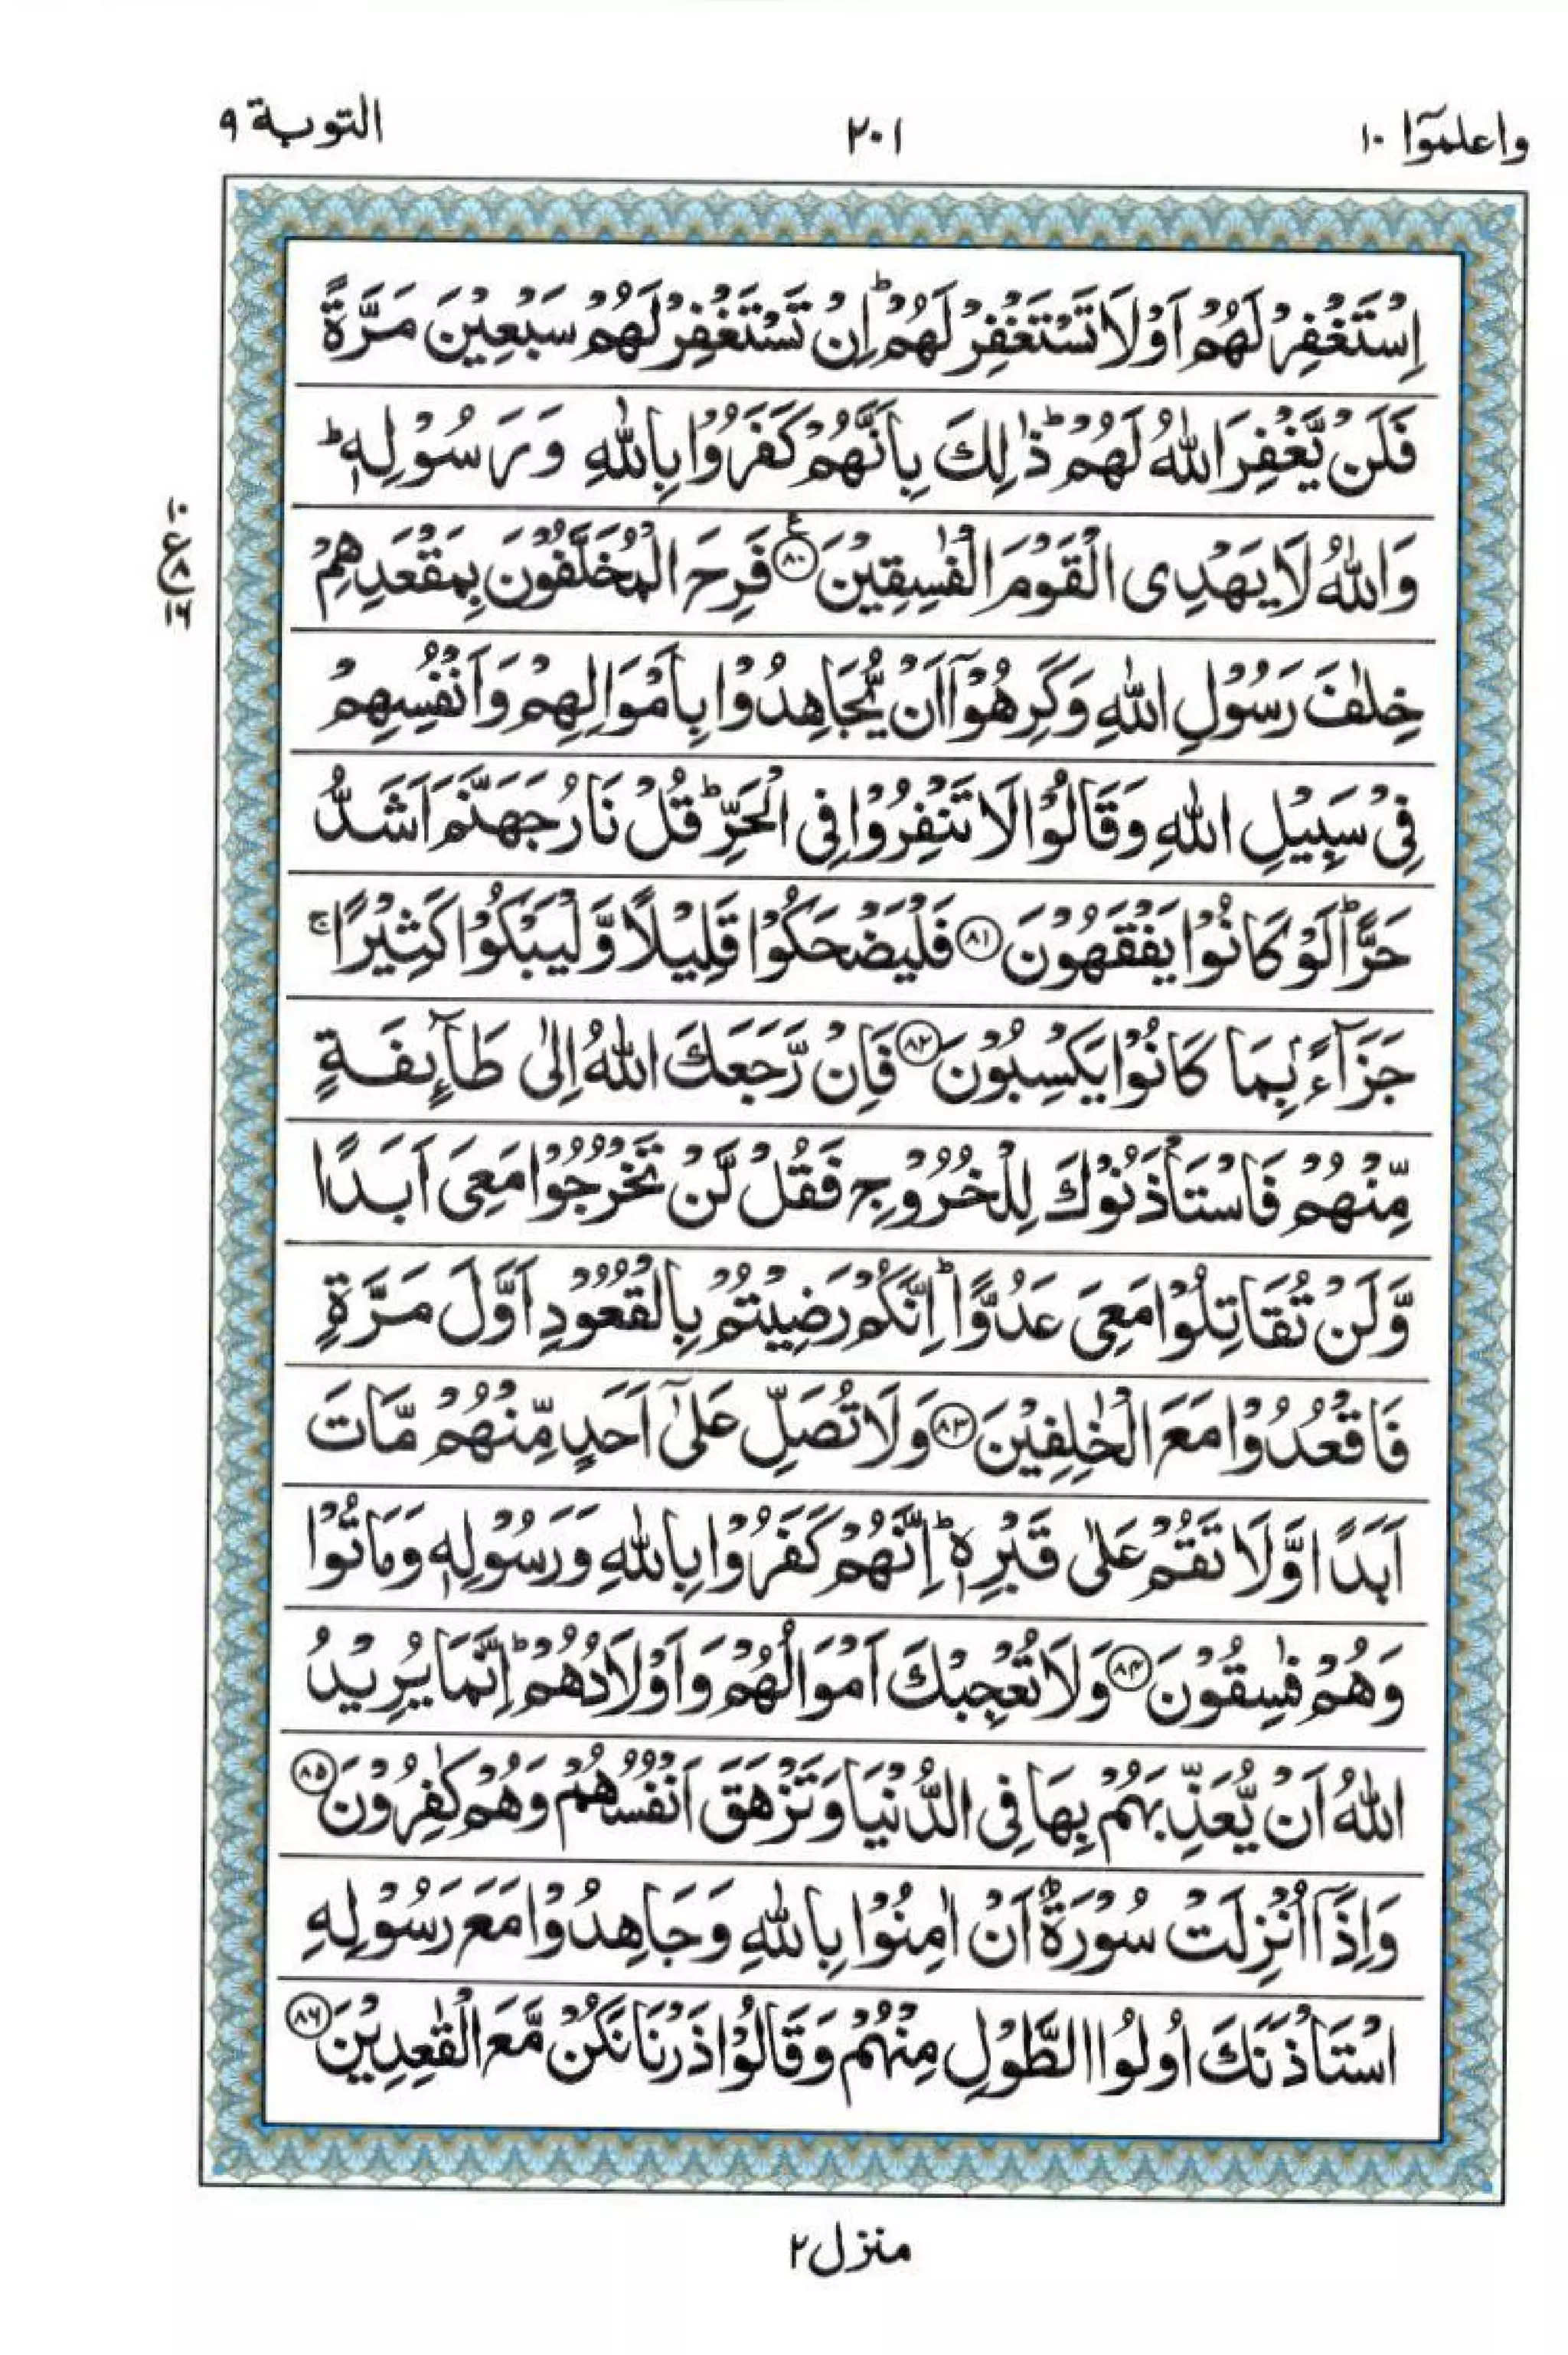 واعلموٓا ۱۰
۲۰۱
التوبة ۹
اِسْتَغْفِرْ لَهُمْ اَوْ لَا تَسْتَغْفِرْ لَهُمْ ؕ اِنْ تَسْتَغْفِرْ لَهُمْ سَبْعِيْنَ مَرَّةً
فَلَنْ يَّغْفِرَ اللّٰهُ لَهُمْ ؕ ذٰلِكَ بِاَنَّهُمْ كَفَرُوْا بِاللّٰهِ وَ رَسُوْلِهٖ ؕ
وَاللّٰهُ لَا يَهْدِى الْقَوْمَ الْفٰسِقِيْنَ ﴿۸۰﴾ ع فَرِحَ الْمُخَلَّفُوْنَ بِمَقْعَدِهِمْ
۱۰
ع
۸
۱۶
خِلٰفَ رَسُوْلِ اللّٰهِ وَكَرِهُوْۤا اَنْ يُّجَاهِدُوْا بِاَمْوَالِهِمْ وَاَنْفُسِهِمْ
فِىْ سَبِيْلِ اللّٰهِ وَقَالُوْا لَا تَنْفِرُوْا فِى الْحَرِّ ؕ قُلْ نَارُ جَهَنَّمَ اَشَدُّ
حَرًّا ؕ لَوْ كَانُوْا يَفْقَهُوْنَ ﴿۸۱﴾ فَلْيَضْحَكُوْا قَلِيْلًا وَّلْيَبْكُوْا كَثِيْرًا ۚ
جَزَآءًۢ بِمَا كَانُوْا يَكْسِبُوْنَ ﴿۸۲﴾ فَاِنْ رَّجَعَكَ اللّٰهُ اِلٰى طَآئِفَةٍ
مِّنْهُمْ فَاسْتَاْذَنُوْكَ لِلْخُرُوْجِ فَقُلْ لَّنْ تَخْرُجُوْا مَعِىَ اَبَدًا
وَّلَنْ تُقَاتِلُوْا مَعِىَ عَدُوًّا ؕ اِنَّكُمْ رَضِيْتُمْ بِالْقُعُوْدِ اَوَّلَ مَرَّةٍ
فَاقْعُدُوْا مَعَ الْخٰلِفِيْنَ ﴿۸۳﴾ وَلَا تُصَلِّ عَلٰٓى اَحَدٍ مِّنْهُمْ مَّاتَ
اَبَدًا وَّلَا تَقُمْ عَلٰى قَبْرِهٖ ؕ اِنَّهُمْ كَفَرُوْا بِاللّٰهِ وَرَسُوْلِهٖ وَمَاتُوْا
وَهُمْ فٰسِقُوْنَ ﴿۸۴﴾ وَلَا تُعْجِبْكَ اَمْوَالُهُمْ وَاَوْلَادُهُمْ ؕ اِنَّمَا يُرِيْدُ
اللّٰهُ اَنْ يُّعَذِّبَهُمْ بِهَا فِى الدُّنْيَا وَتَزْهَقَ اَنْفُسُهُمْ وَهُمْ كٰفِرُوْنَ ﴿۸۵﴾
وَاِذَاۤ اُنْزِلَتْ سُوْرَةٌ اَنْ اٰمِنُوْا بِاللّٰهِ وَجَاهِدُوْا مَعَ رَسُوْلِهِ
اسْتَاْذَنَكَ اُولُوا الطَّوْلِ مِنْهُمْ وَقَالُوْا ذَرْنَا نَكُنْ مَّعَ الْقٰعِدِيْنَ ﴿۸۶﴾
منزل ۲